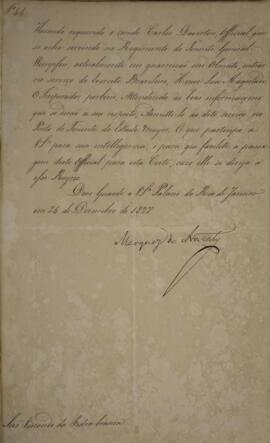 Nº 44
Havendo requerido o conde Carlos Official, que
se acha servindo no Regimento de General
actualmente em em Olmutz, entrar
no serviço do Exercito Brasileiro, Houve Sua Magestade
O Imperador por bem, Attendendo ás boas informações
que se derão a seu respeito, Permittir lhe do dito serviço no
Posto de Tenente do Estado Maior. O que participo a
V.Sª para sua intelligencia, e para que facilite a passa
gem deste Official para esta Corte, caso elle se dirija a
esse
Deos Guarde a V.Sª Palacio do Rio de Janeiro
em 24 de Dezembro de 1827
Marquez de Aracaty
Senr Visconde da Pedra branca